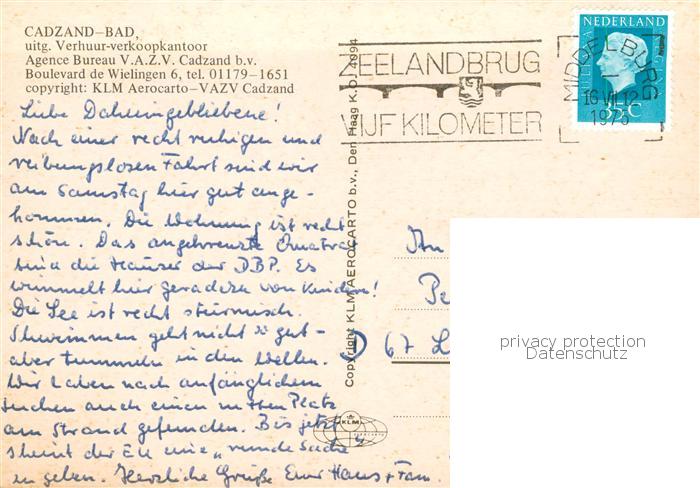 CADZAND–BAD,
uitg. Verhuur-verkoopkantoor
Agence Bureau V.A.Z.V. Cadzand b.v.
Boulevard de Wielingen 6, tel. 01179–1651
copyright: KLM Aerocarto–VAZV Cadzand
Liebe Daheimgebliebene!
Nach einer recht ruhigen und
reibungslosen Fahrt sind wir
am Samstag hier gut ange-
kommen. Die Wohnung ist recht
schön. Das angekreuzte Quadrat
sind die Häuser der DBP. Es
wimmelt hier geradezu von Kindern!
Die See ist recht stürmisch.
Schwimmen geht nicht so gut –
aber tummeln in den Wellen.
Wir haben nach anfänglichem
Suchen auch einen netten Platz
am Strand gefunden. Bis jetzt
scheint der Eu eine „runde Sache"
zu geben. Herzliche Grüße Eure Hans + Fam.
Copyright KLM AEROCARTO b.v., Den Haag K.D. 4094
KLM
AEROCARTO
ZEELANDBRUG
VIJF KILOMETER
MIDDELBURG
16 VII 12
1975
NEDERLAND
55C
An
Pe
67 L
privacy protection
Datenschutz